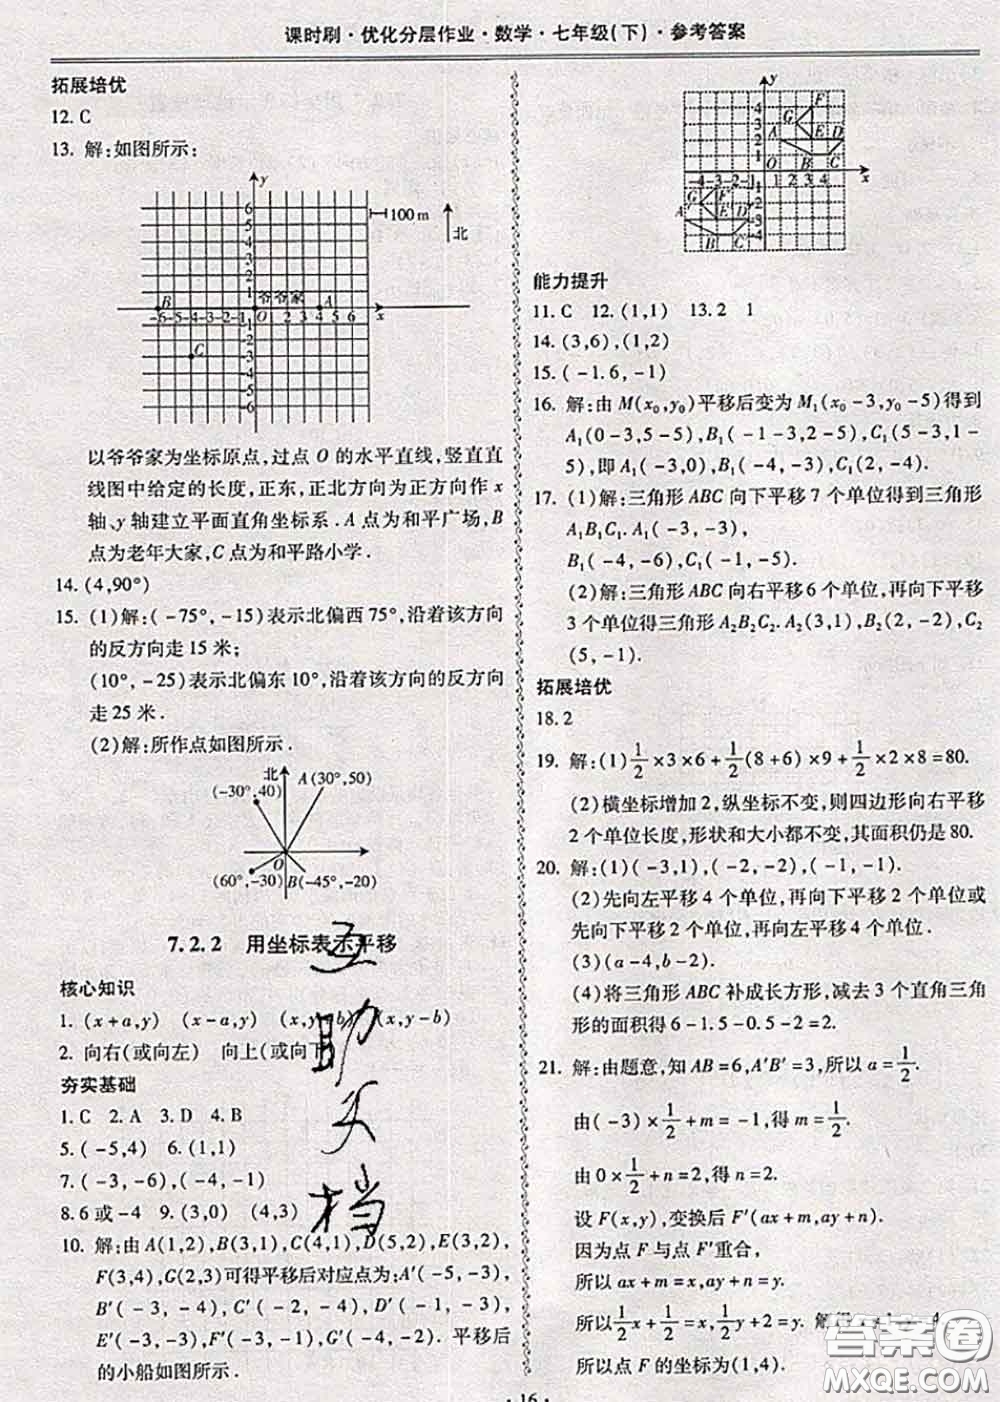 课时刷·优化分层作业·数学·七年级(下)·参考答案
拓展培优
12. C
13. 解:如图所示:
以爷爷家为坐标原点,过点 O 的水平直线,竖直直
线图中给定的长度,正东,正北方向为正方向作 x
轴、y 轴建立平面直角坐标系. A 点为和平广场, B
点为老年大家, C 点为和平路小学.
14. (4,90°)
15. (1)解:(-75°,-15)表示北偏西75°,沿着该方向
的反方向走15 米;
(10°,-25)表示北偏东10°,沿着该方向的反方向
走25 米.
(2)解:所作点如图所示.
北
A(30°,50)
(-30°,40)
O
(60°,-30)
B(-45°,-20)
7.2.2 用坐标表示平移
核心知识
1. (x+a,y) (x-a,y) (x,y+b) (x,y-b)
2. 向右(或向左) 向上(或向下)
夯实基础
1. C 2. A 3. D 4. B
5. (-5,4) 6. (1,1)
7. (-3,-6),(-4,-1)
8. 6 或 -4 9. (3,0) (4,3)
10. 解:由 A(1,2),B(3,1),C(4,1),D(5,2),E(3,2),
F(3,4),G(2,3)可得平移后对应点为:A'(-5,-3),
B'(-3,-4),C'(-2,-4),D'(-1,-3),
E'(-3,-3),F'(-3,-1),G'(-4,-2). 平移后
的小船如图所示.
能力提升
11. C 12. (1,1) 13. 2 1
14. (3,6),(1,2)
15. (-1.6,-1)
16. 解:由 M(x₀,y₀)平移后变为 M₁(x₀-3,y₀-5)得到
A₁(0-3,5-5),B₁(-1-3,2-5),C₁(5-3,1-
5),即 A₁(-3,0),B₁(-4,-3),C₁(2,-4).
17. (1)解:三角形 ABC 向下平移7 个单位得到三角形
A₁B₁C₁. A₁(-3,-3),
B₁(-4,-6),C₁(-1,-5).
(2)解:三角形 ABC 向右平移6 个单位,再向下平移
3 个单位得三角形 A₂B₂C₂. A₂(3,1),B₂(2,-2),C₂
(5,-1).
拓展培优
18. 2
19. 解:(1) 1/2×3×6+1/2(8+6)×9+1/2×2×8=80.
(2)横坐标增加2,纵坐标不变,则四边形向右平移
2 个单位长度,形状和大小都不变,其面积仍是 80.
20. 解:(1)(-3,1),(-2,-2),(-1,-1).
(2)先向左平移 4 个单位,再向下平移2 个单位或
先向下平移 2 个单位,再向左平移 4 个单位.
(3)(a-4,b-2).
(4)将三角形 ABC 补成长方形,减去 3 个直角三角
形的面积得 6-1.5-0.5-2=2.
21. 解:由题意,知 AB=6,A'B'=3,所以 a=1/2.
由(-3)×1/2+m=-1,得 m=1/2.
由 0×1/2+n=2,得 n=2.
设 F(x,y),变换后 F'(ax+m,ay+n).
因为点 F 与点 F'重合,
所以 ax+m=x,ay+n=y.
所以1/2x+1/2=x,1/2y+2=y. 解得 x=1,y=4
所以点 F 的坐标为(1,4).
·16·
互
助
文
档
答案卷
MXQE.COM